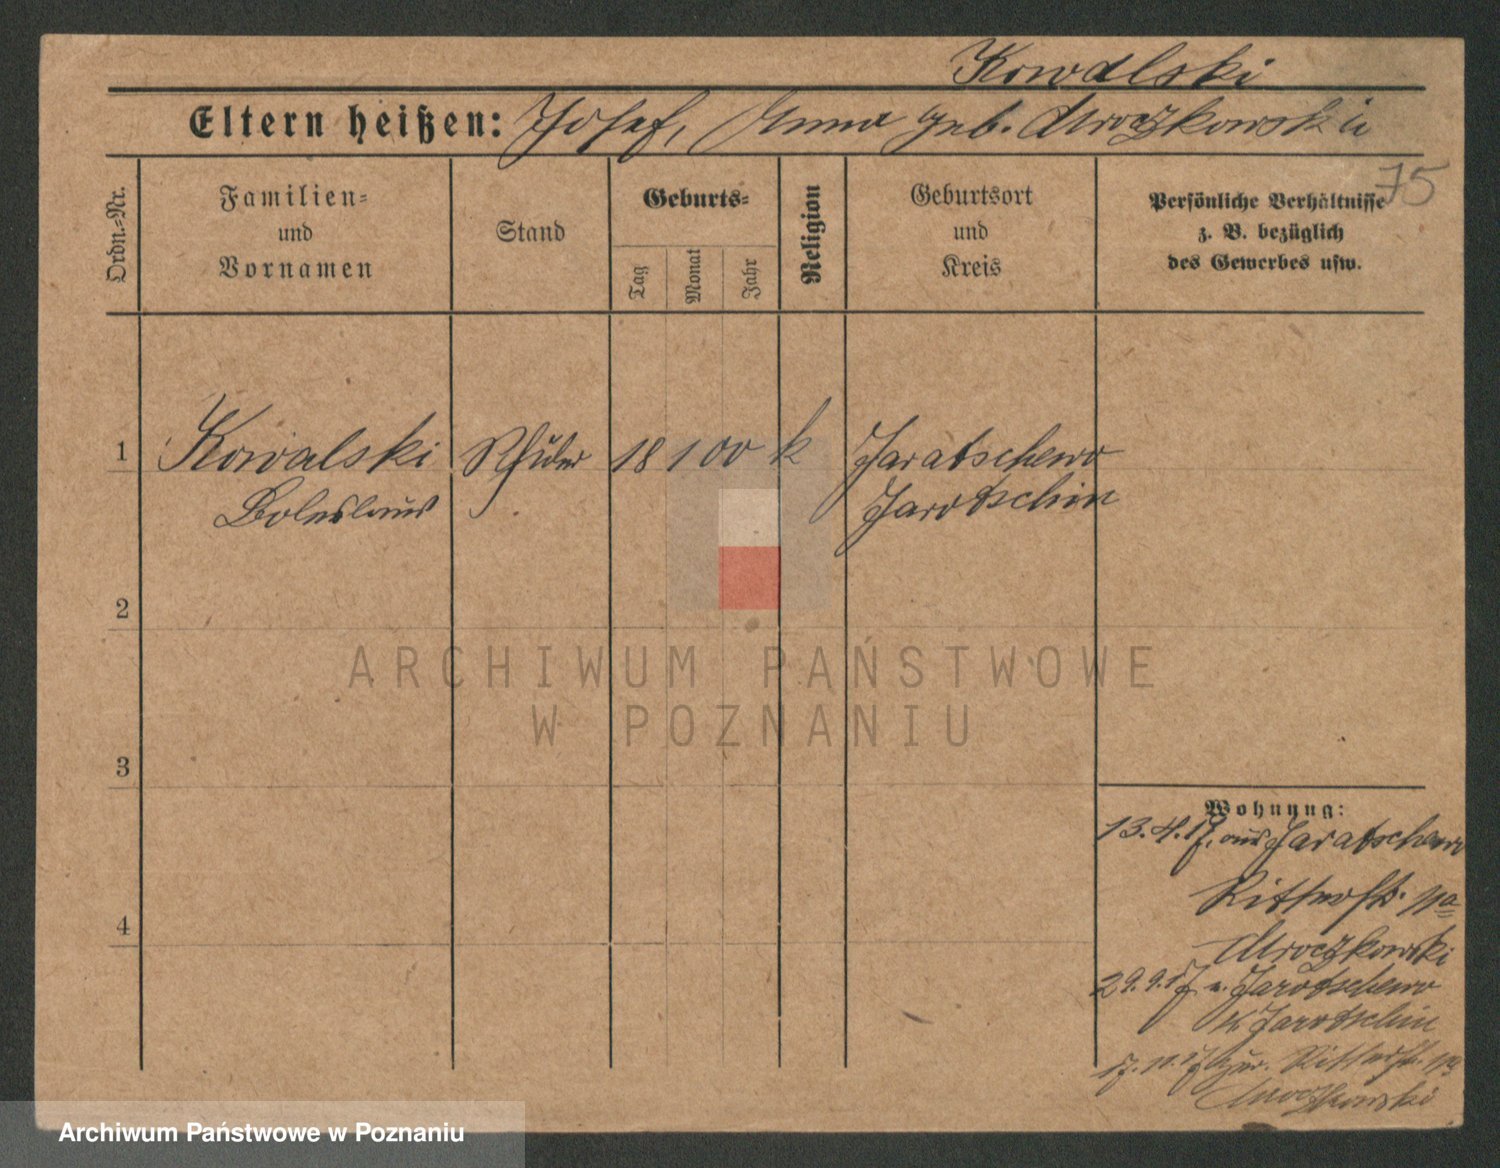 Kowalski
Eltern heißen: Josef, Anna geb. Mroczkowski
75
Ordn.=Nr.
Familien=
und
Vornamen
Stand
Geburts=
Tag
Monat
Jahr
Religion
Geburtsort
und
Kreis
Persönliche Verhältnisse
z. B. bezüglich
des Gewerbes usw.
1 Kowalski Schüler 18 1 00 k Jaratschewo
Boleslaus Jarotschin
2
3
4
Wohnung:
13.4.17, aus Jaratschewo
Ritterstr. 11a
Mroczkowski
29.9.17 n. Jarotschewo
K Jarotschin
17.11.17 zur. Ritterstr. 11a
Mroczkowski
ARCHIWUM PAŃSTWOWE
W POZNANIU
Archiwum Państwowe w Poznaniu